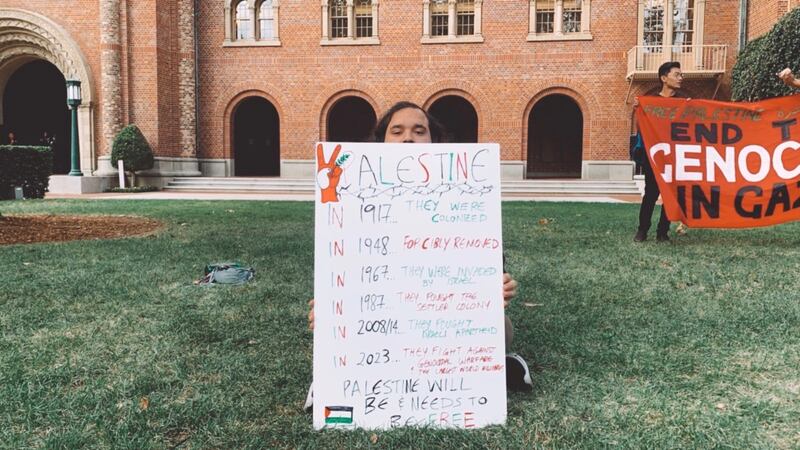 PALESTINE
IN 1917... THEY WERE
COLONIZED
IN 1948... FORCIBLY REMOVED
IN 1967... THEY WERE INVADED
BY ISRAEL
IN 1987... THEY FOUGHT THE
SETTLER COLONY
IN 2008/14... THEY FOUGHT
ISRAELI APARTHEID
IN 2023... THEY FIGHT AGAINST
GENOCIDAL WARFARE
& THE LARGEST WORLD
PALESTINE WILL
BE & NEEDS TO
BE FREE
FREE PALESTINE
END T
GENOC
IN GAZ